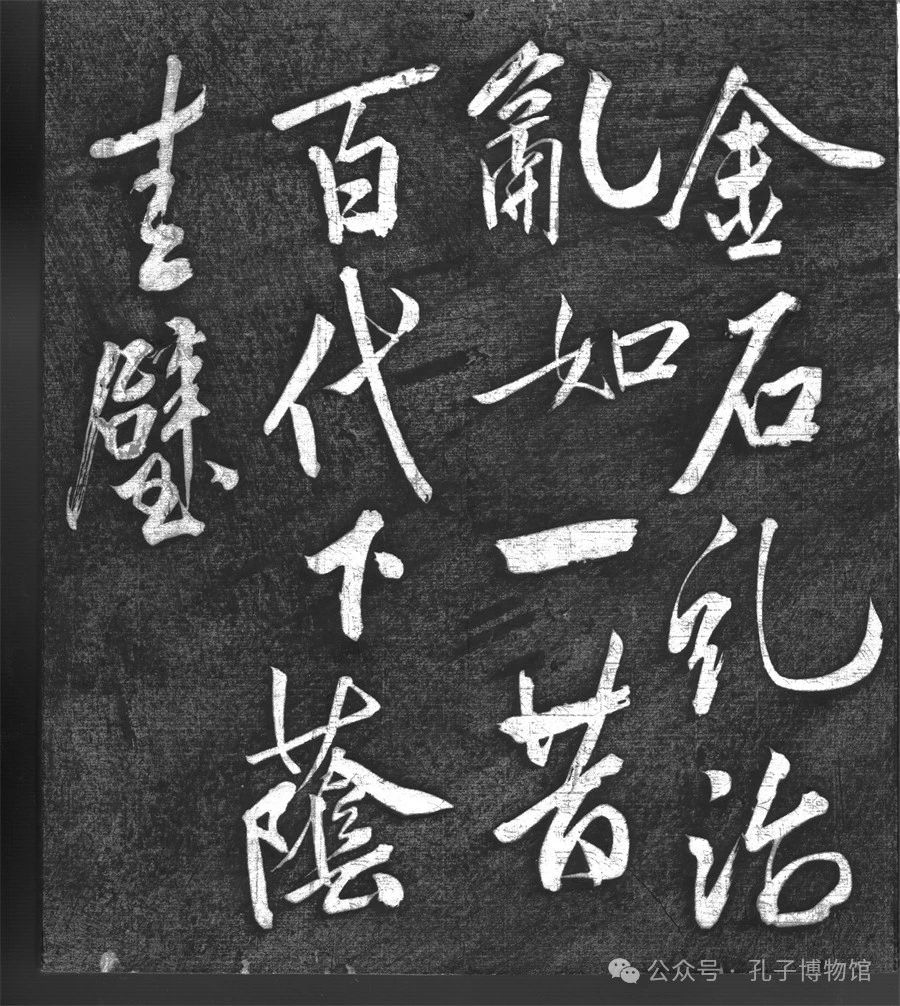 金石糺治
亂如一昔
百代下蔭
圭璧
公众号 · 孔子博物馆